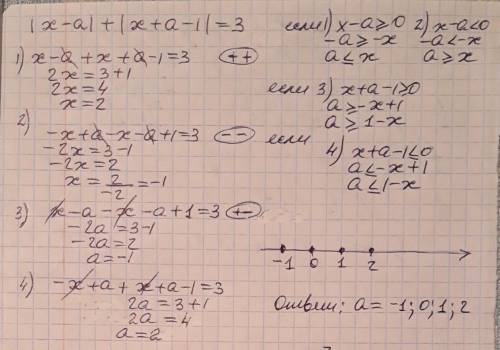 |x-a| + |x+a-1| = 3
1) x-a+x+a-1=3 (++)
2x=3+1
2x=4
x=2
2)
-x+a-x-a+1=3 (--)
-2x=3-1
-2x=2
x=2/-2=-1
3) x-a-x-a+1=3 (+-)
-2a=3-1
-2a=2
a=-1
4) -x+a+x+a-1=3
2a=3+1
2a=4
a=2
если 1) x-a≥0 2) x-a<0
-a≥-x -a<-x
a≤x a≥x
если 3) x+a-1≥0
a≥-x+1
a≥1-x
если
4) x+a-1≤0
a≤-x+1
a≤1-x
-1 0 1 2
Ответ: a= -1; 0; 1; 2